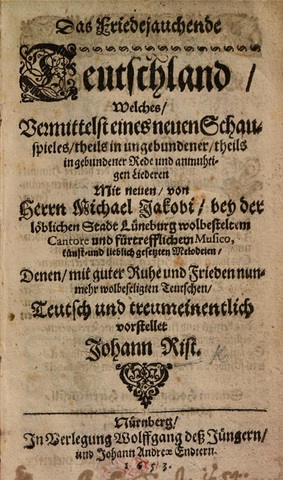 Das Friedejauchende
Teutschland /
Welches /
Vermittelst eines neuen Schau-
spieles / theils in ungebundener / theils
in gebundener Rede und anmuhti-
gen Liederen
Mit neuen / von
Herrn Michael Jakobi / bey der
löblichen Stadt Lüneburg wolbesteltem
Cantore und fürtrefflichem Musico,
künst- und lieblich gesetzten Melodeien /
Denen / mit guter Ruhe und Frieden nun-
mehr wolbeseligten Teutschen /
Teutsch und treumeinentlich
vorstellet
Johann Rist.
Nürnberg /
In Verlegung Wolffgang deß Jüngern /
und Johann Andreæ Endtern.
1653.